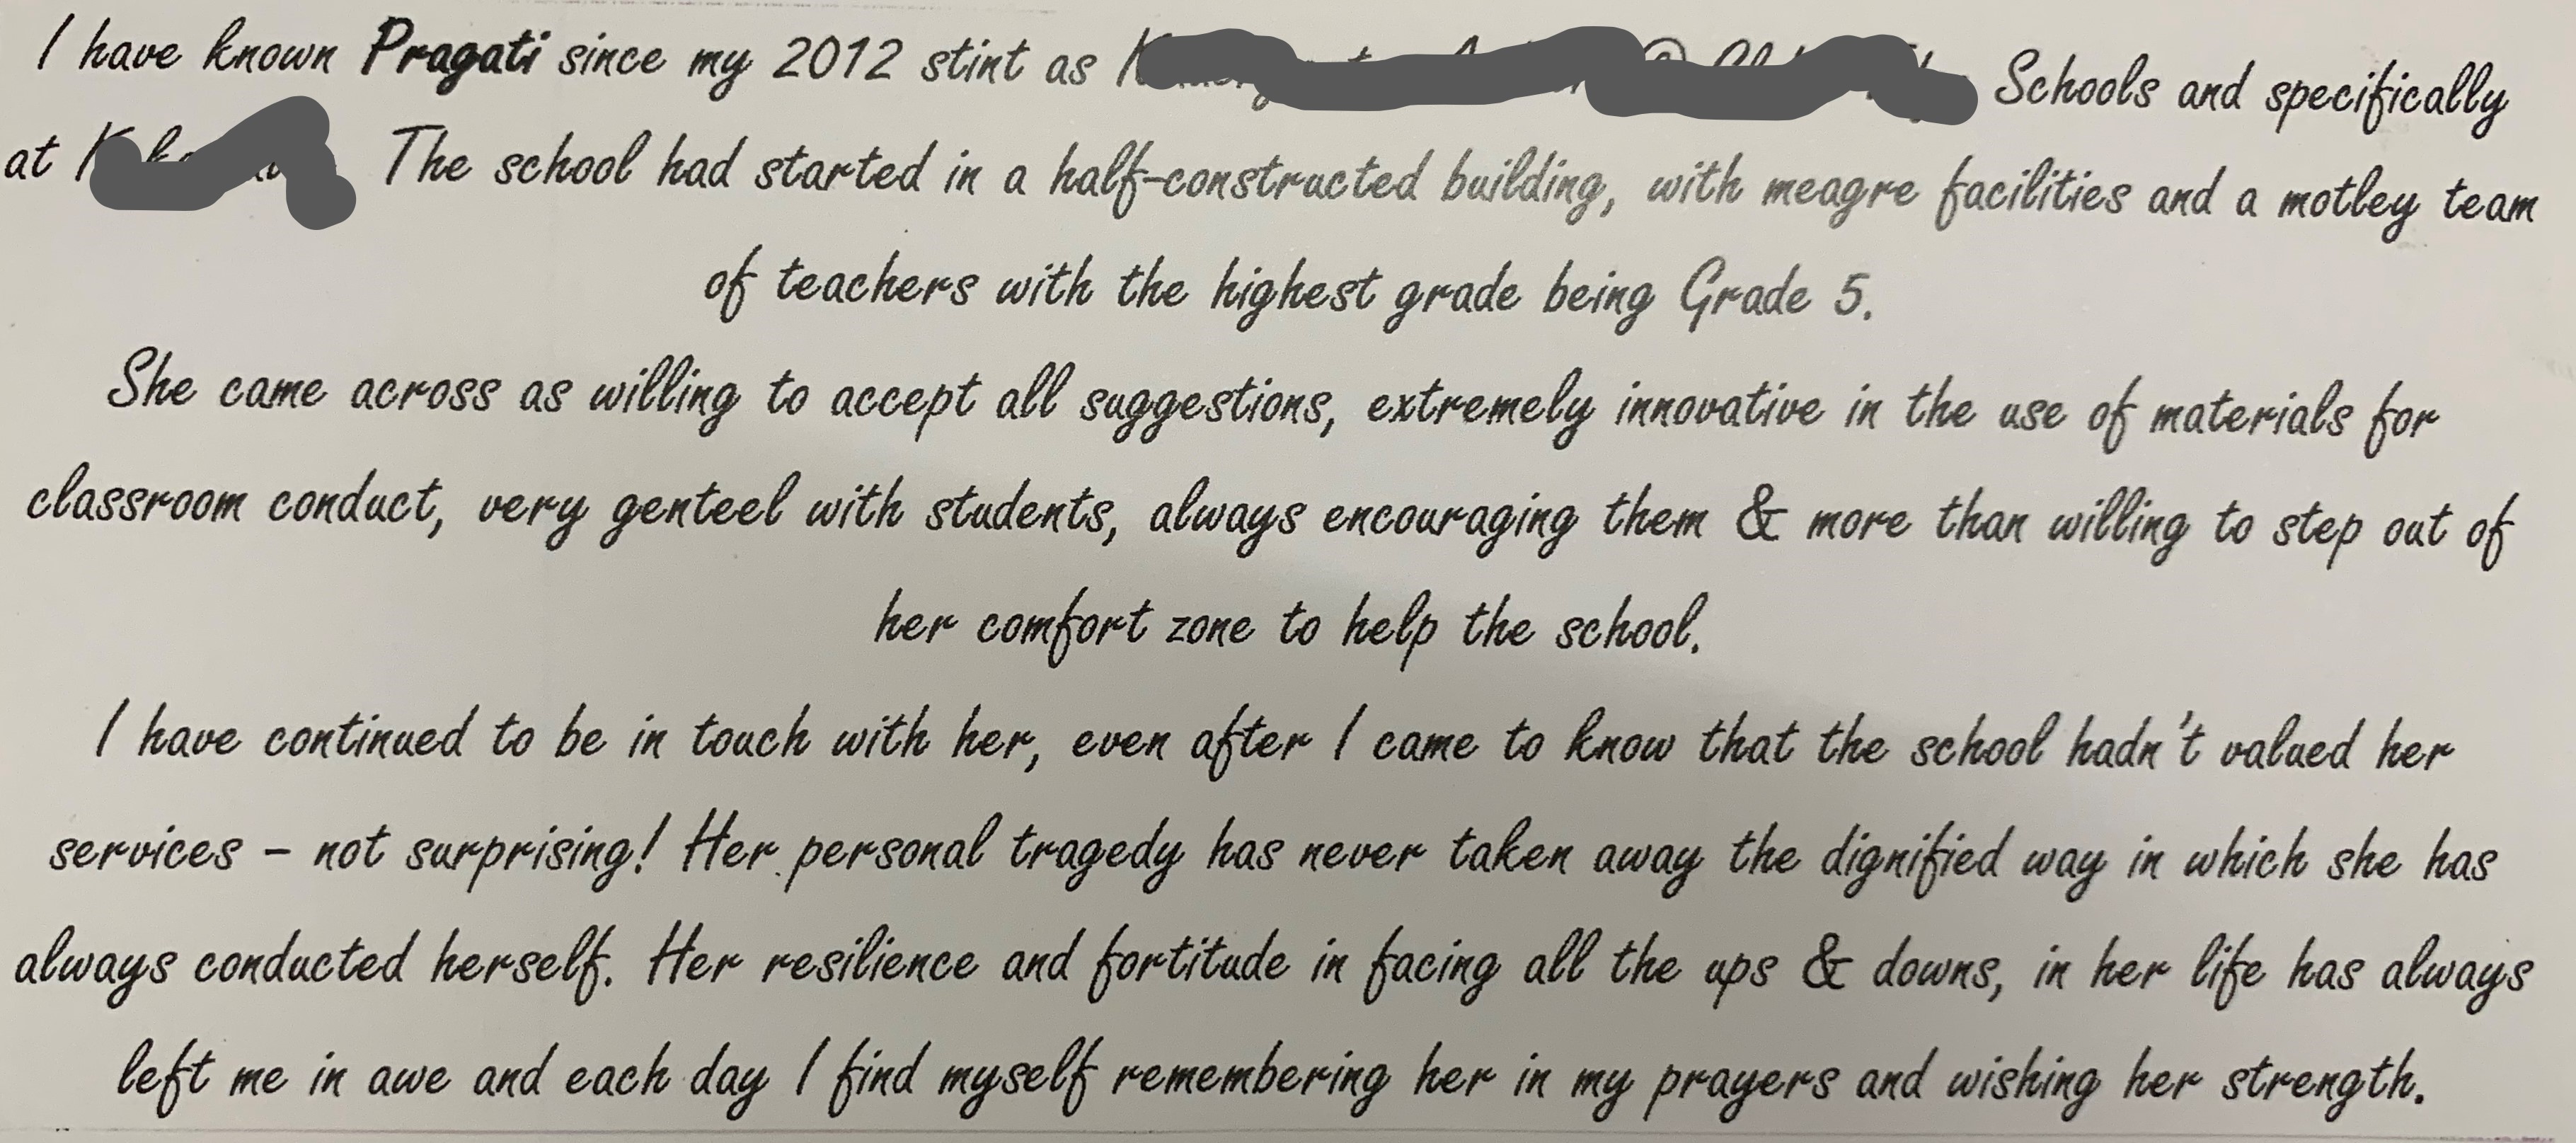 I have known Pragati since my 2012 stint as Schools and specifically
at The school had started in a half-constructed building, with meagre facilities and a motley team
of teachers with the highest grade being Grade 5.
She came across as willing to accept all suggestions, extremely innovative in the use of materials for
classroom conduct, very genteel with students, always encouraging them & more than willing to step out of
her comfort zone to help the school.
I have continued to be in touch with her, even after I came to know that the school hadn't valued her
services – not surprising! Her personal tragedy has never taken away the dignified way in which she has
always conducted herself. Her resilience and fortitude in facing all the ups & downs, in her life has always
left me in awe and each day I find myself remembering her in my prayers and wishing her strength.